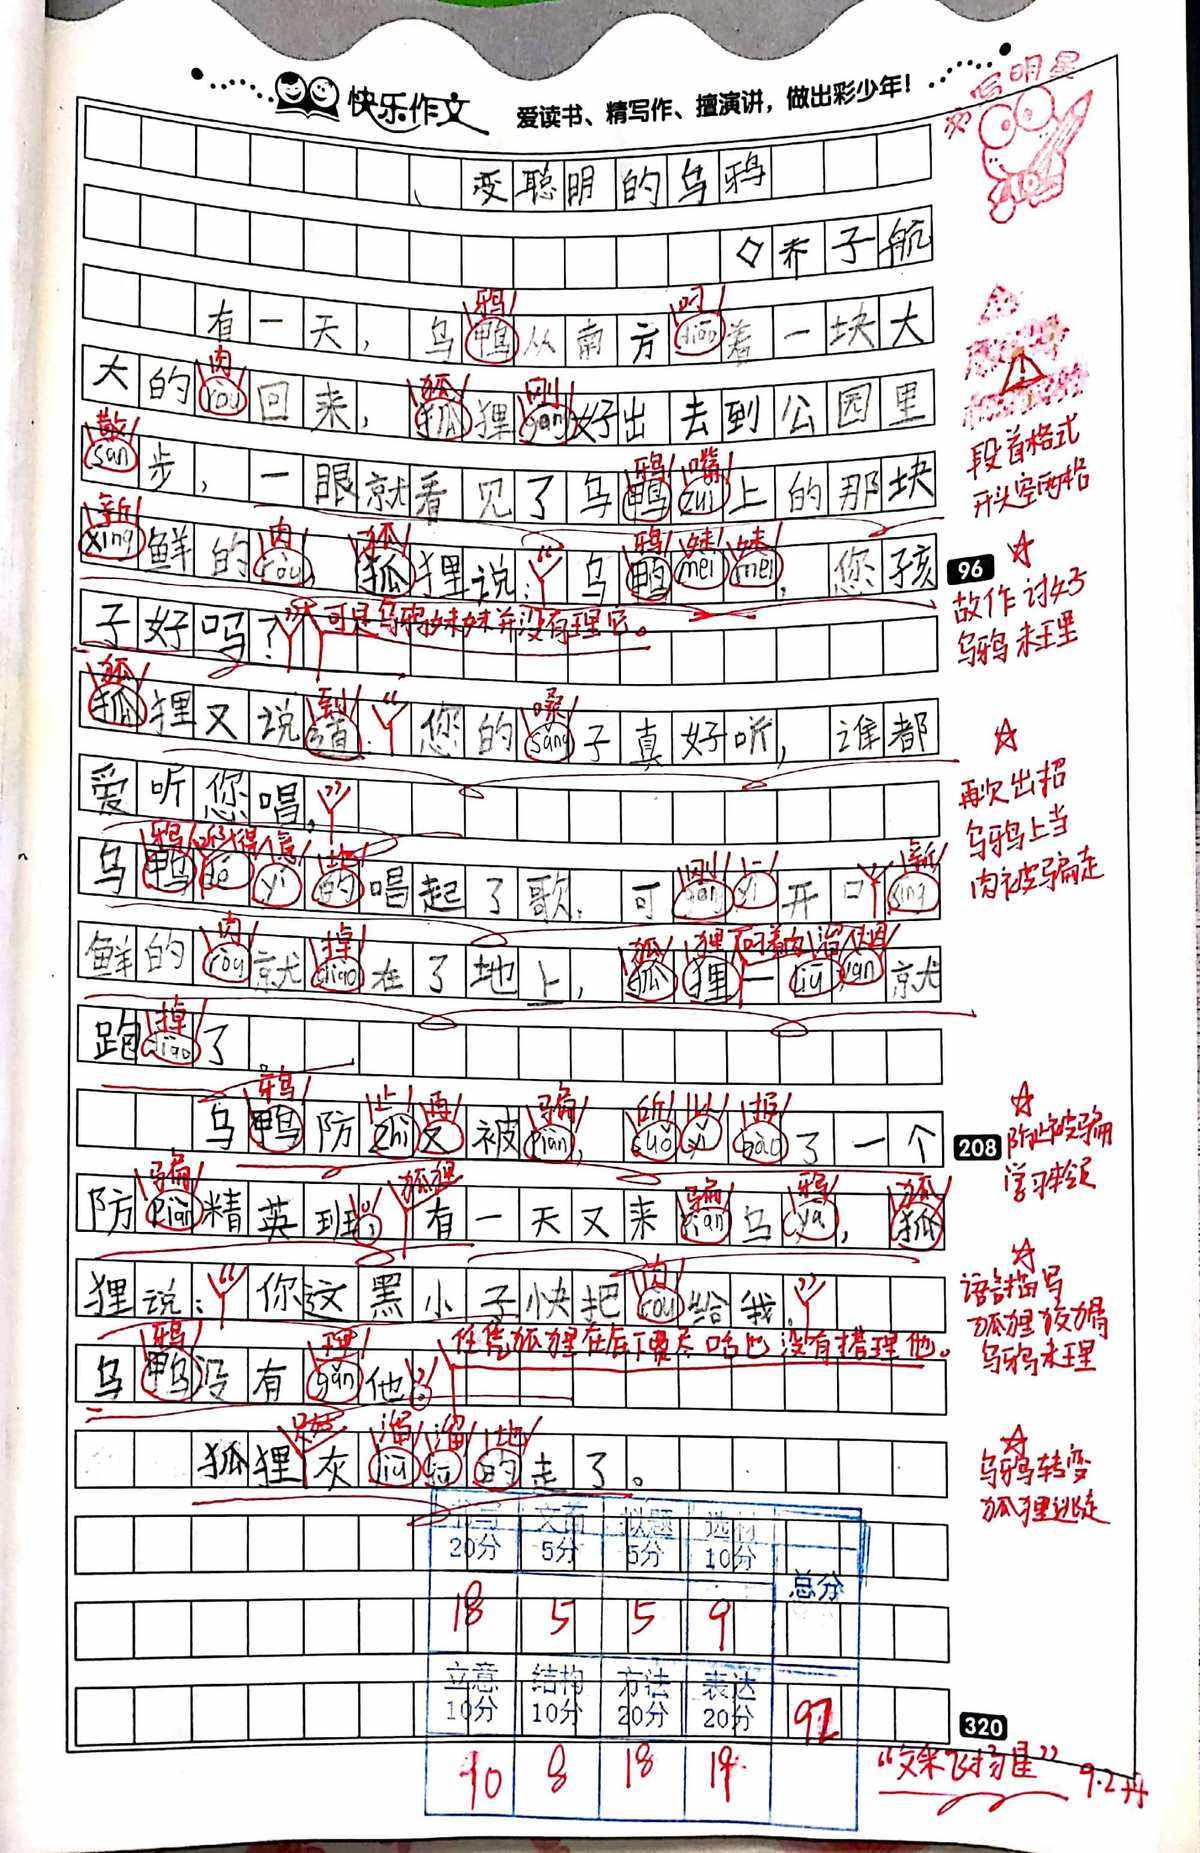 快乐作文 爱读书、精写作、擅演讲，做出彩少年！
明星
变聪明的乌鸦
◇乔子航
鸦 叼
有一天，乌鸭从南方diāo着一块大
肉 狐 刚
大的ròu回来，狐狸gāng好出去到公园里
散 鸦 嘴
sàn步，一眼就看见了乌鸭zuǐ上的那块
新 肉 狐 “ 鸦 妹 妹
xīng鲜的ròu，狐狸说：乌鸭mèi mèi，您孩
子好吗？” 可是乌鸦妹妹并没有理它。
狐 到 “ 嗓
狐狸又说道：您的sǎng子真好听，谁都
爱听您唱。”
鸦 得意 地 刚 一 新
乌鸭dé yì的唱起了歌，可gāng yī开口xīng
肉 掉 狐 狸 叼着肉 溜烟
鲜的ròu就diào在了地上，狐狸一liū yān就
掉
跑diào了
鸦 止 再 骗 所 以 报
乌鸭防zhǐ又被piàn，suǒ yǐ bào了一个
骗 狐狸 骗 鸦 狐
防piàn精英班，有一天又来piàn乌yā，狐
“ 肉 ”
狸说：你这黑小子快把ròu给我。
鸦 理 任凭狐狸在底下 也没有搭理他。
乌鸭没有gǎn他。
溜 溜 地
狐狸灰liū liū的走了。
段首格式
开头空两格
96
故作讨好
乌鸦未理
再次出招
乌鸦上当
肉被骗走
208
防止被骗
学习本领
语言描写
狐狸狡猾
乌鸦未理
乌鸦转变
狐狸逃走
书写 文面 拟题 选材
20分 5分 5分 10分 总分
18 5 5 9
立意 结构 方法 表达
10分 10分 20分 20分
10 8 18 19 92
320
“文采飞扬星”
9.2